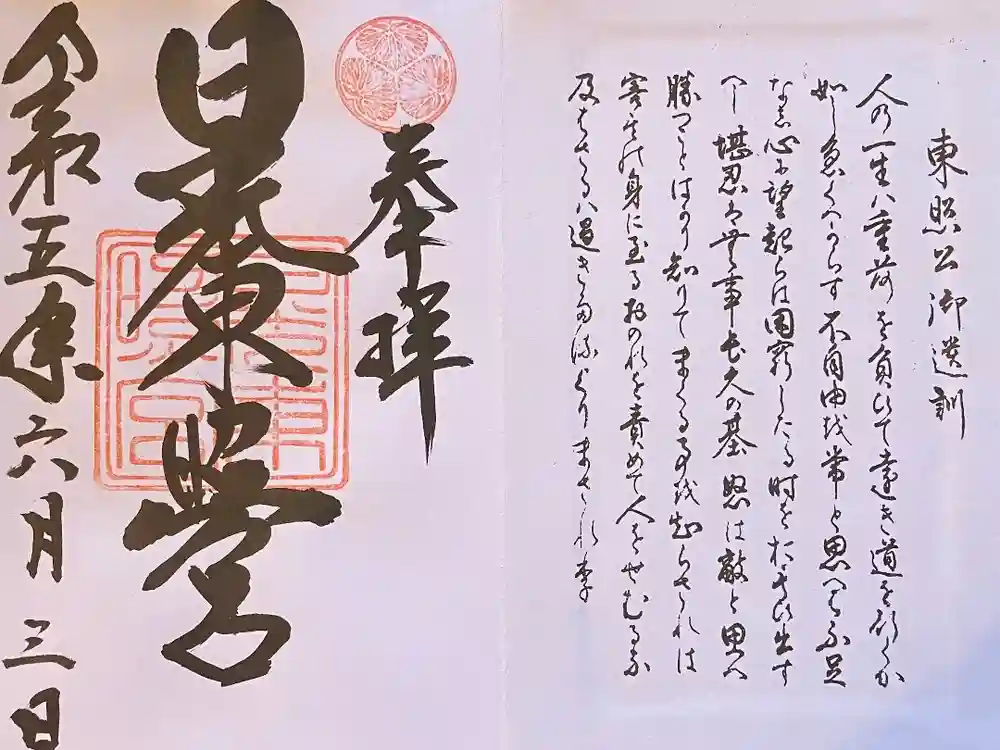 東照公御遺訓
人の一生ハ重荷を負ひて遠き道を行くか
如し急くへからす不自由を常と思へは不足
なし心に望起らは困窮したる時を思ひ出す
へし堪忍は無事長久の基怒は敵と思へ
勝つことはかり知りてまくる事を知らされは
害其の身に至るおのれを責めて人をせむるな
及はさるハ過きたるよりまされり
奉拝
日光東照宮
令和五年六月三日